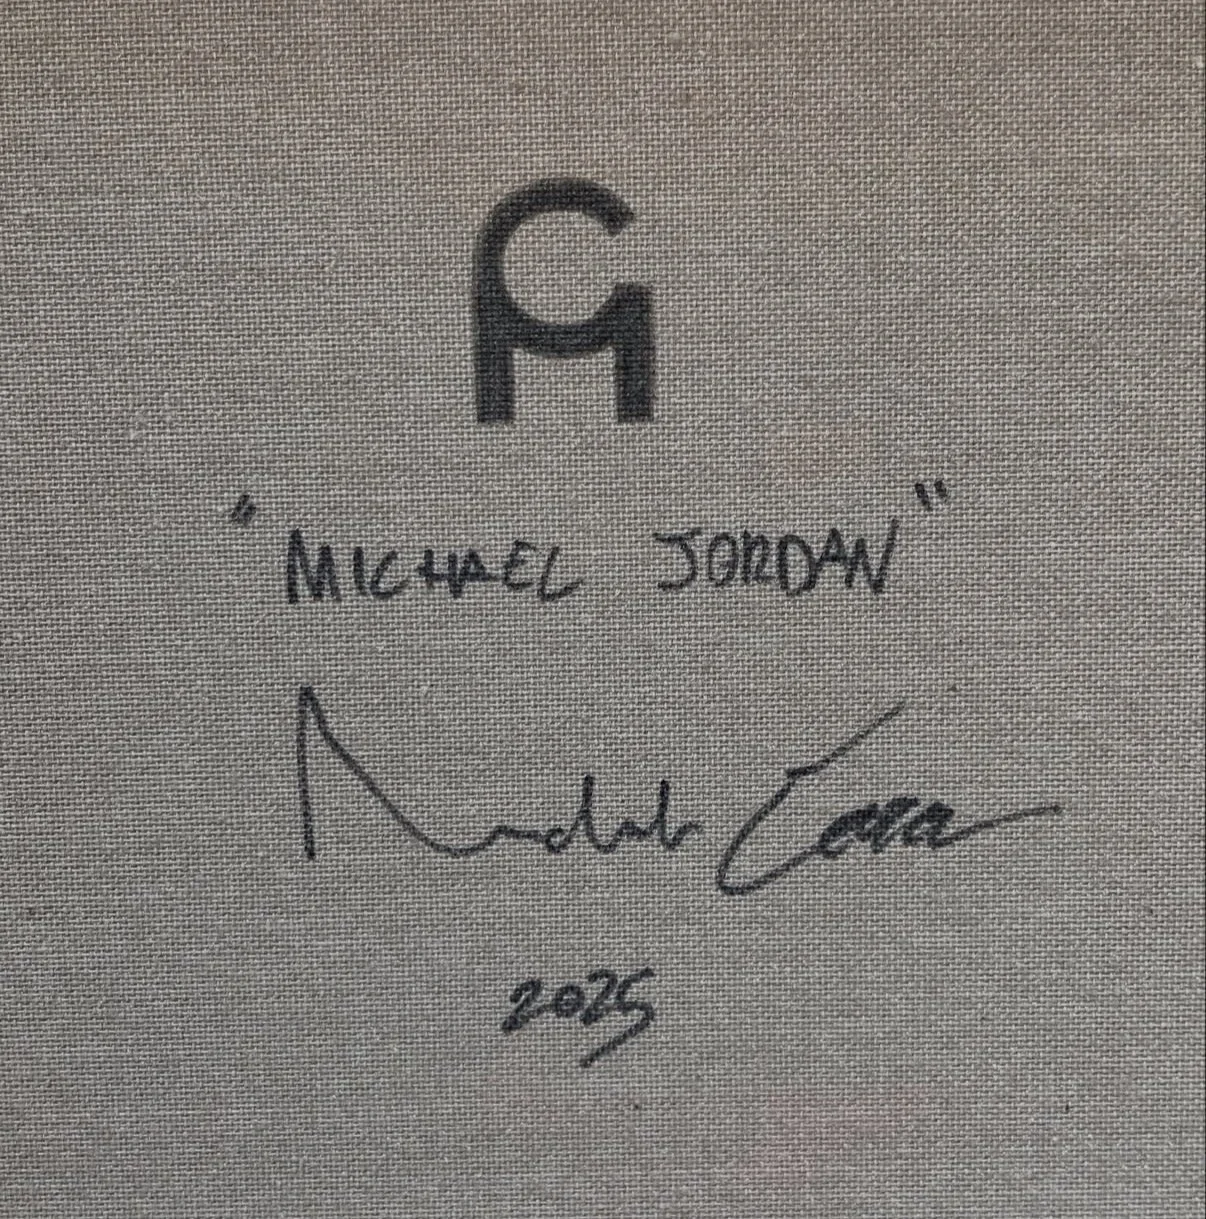 "MICHAEL JORDAN"
2025